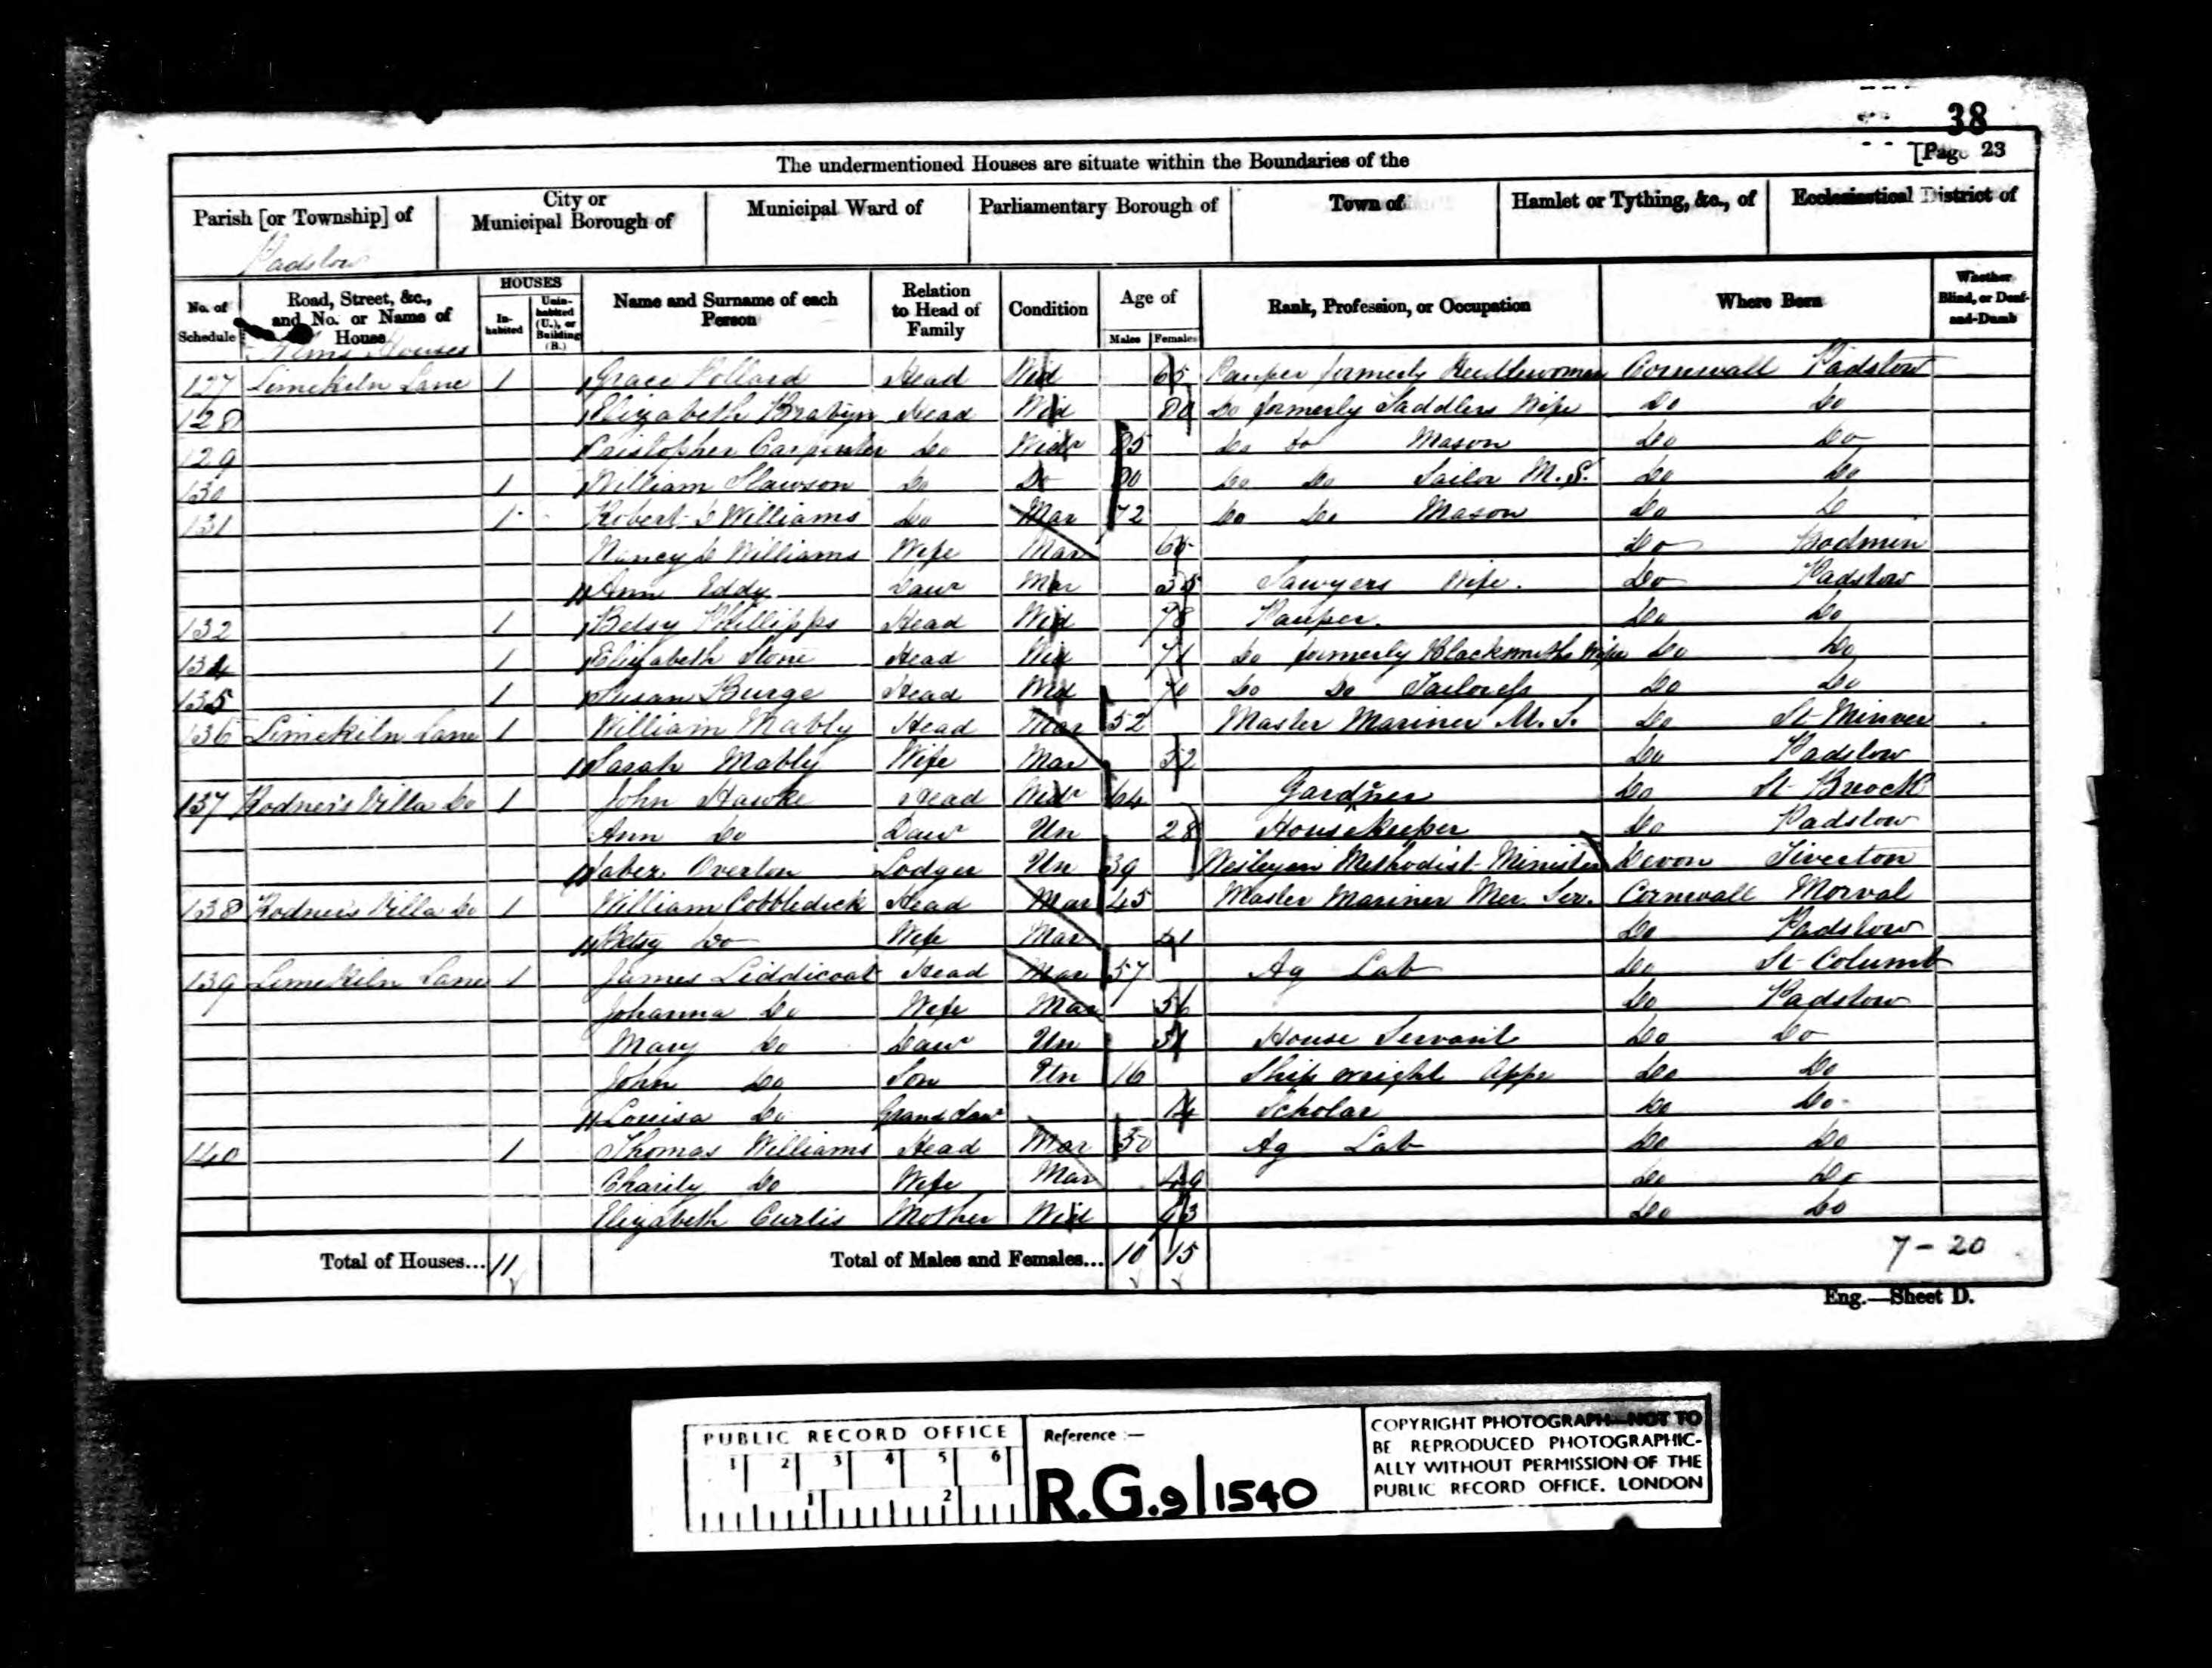 38
The undermentioned Houses are situate within the Boundaries of the
[Page 23
Parish [or Township] of
City or Municipal Borough of
Municipal Ward of
Parliamentary Borough of
Town of
Hamlet or Tything, &c., of
Ecclesiastical District of
Padstow
No. of Schedule
Road, Street, &c., and No. or Name of House
HOUSES
In-habited
Unin-habited (U.), or Building (B.)
Name and Surname of each Person
Relation to Head of Family
Condition
Age of
Males
Females
Rank, Profession, or Occupation
Where Born
Whether Blind, or Deaf-and-Dumb
Alms Houses
127 Limekiln Lane 1 Grace Pollard Head Wid 65 Pauper formerly Needlewoman Cornwall Padstow
128 Elizabeth Brabyn Head Wid Do formerly Saddlers Wife Do Do
129 Cristopher Carpenter Do Widr 85 Do Do Mason Do Do
130 1 William Slawson Do Do 80 Do Do Sailor M.S. Do Do
131 1 Robert Williams Do Mar 72 Do Do Mason Do Do
Nancy Williams Wife Mar Do Bodmin
Ann Eddy Daur Mar 35 Sawyers Wife. Do Padstow
132 1 Betsy Phillipps Head Wid 78 Pauper. Do Do
134 1 Elizabeth Stone Head Wid 71 Do formerly Blacksmiths Wife Do Do
135 1 Susan Burge Head Wid 70 Do Do Tailoress Do Do
136 Limekiln Lane 1 William Mably Head Mar 52 Master Mariner M.S. Do St Minver
Sarah Mably Wife Mar 52 Do Padstow
137 Rodneis Villa Do 1 John Hawke Head Widr 64 Gardner Do St Breock
Ann Do Daur Un 28 House Keeper Do Padstow
Jaber Overton Lodger Un 39 Wesleyan Methodist Minister Devon Tiverton
138 Rodneis Villa Do 1 William Cobbledick Head Mar 45 Master Mariner Mer. Ser. Cornwall Morval
Betsy Do Wife Mar 41 Do Padstow
139 Limekiln Lane 1 James Liddicoat Head Mar 57 Ag Lab Do St Columb
Johanna Do Wife Mar 56 Do Padstow
Mary Do Daur Un House Servant Do Do
John Do Son Un 16 Ship wright Appr Do Do
Louisa Do Grand Daur Scholar Do Do
140 1 Thomas Williams Head Mar 50 Ag Lab Do Do
Charity Do Wife Mar 49 Do Do
Elizabeth Curtis Mother Wid Do Do
Total of Houses... 11
Total of Males and Females... 10 15
7-20
Eng.—Sheet D.
PUBLIC RECORD OFFICE
1 2 3 4 5 6
1 2
Reference :—
R.G.9/1540
COPYRIGHT PHOTOGRAPH—NOT TO
BE REPRODUCED PHOTOGRAPHIC-
ALLY WITHOUT PERMISSION OF THE
PUBLIC RECORD OFFICE, LONDON